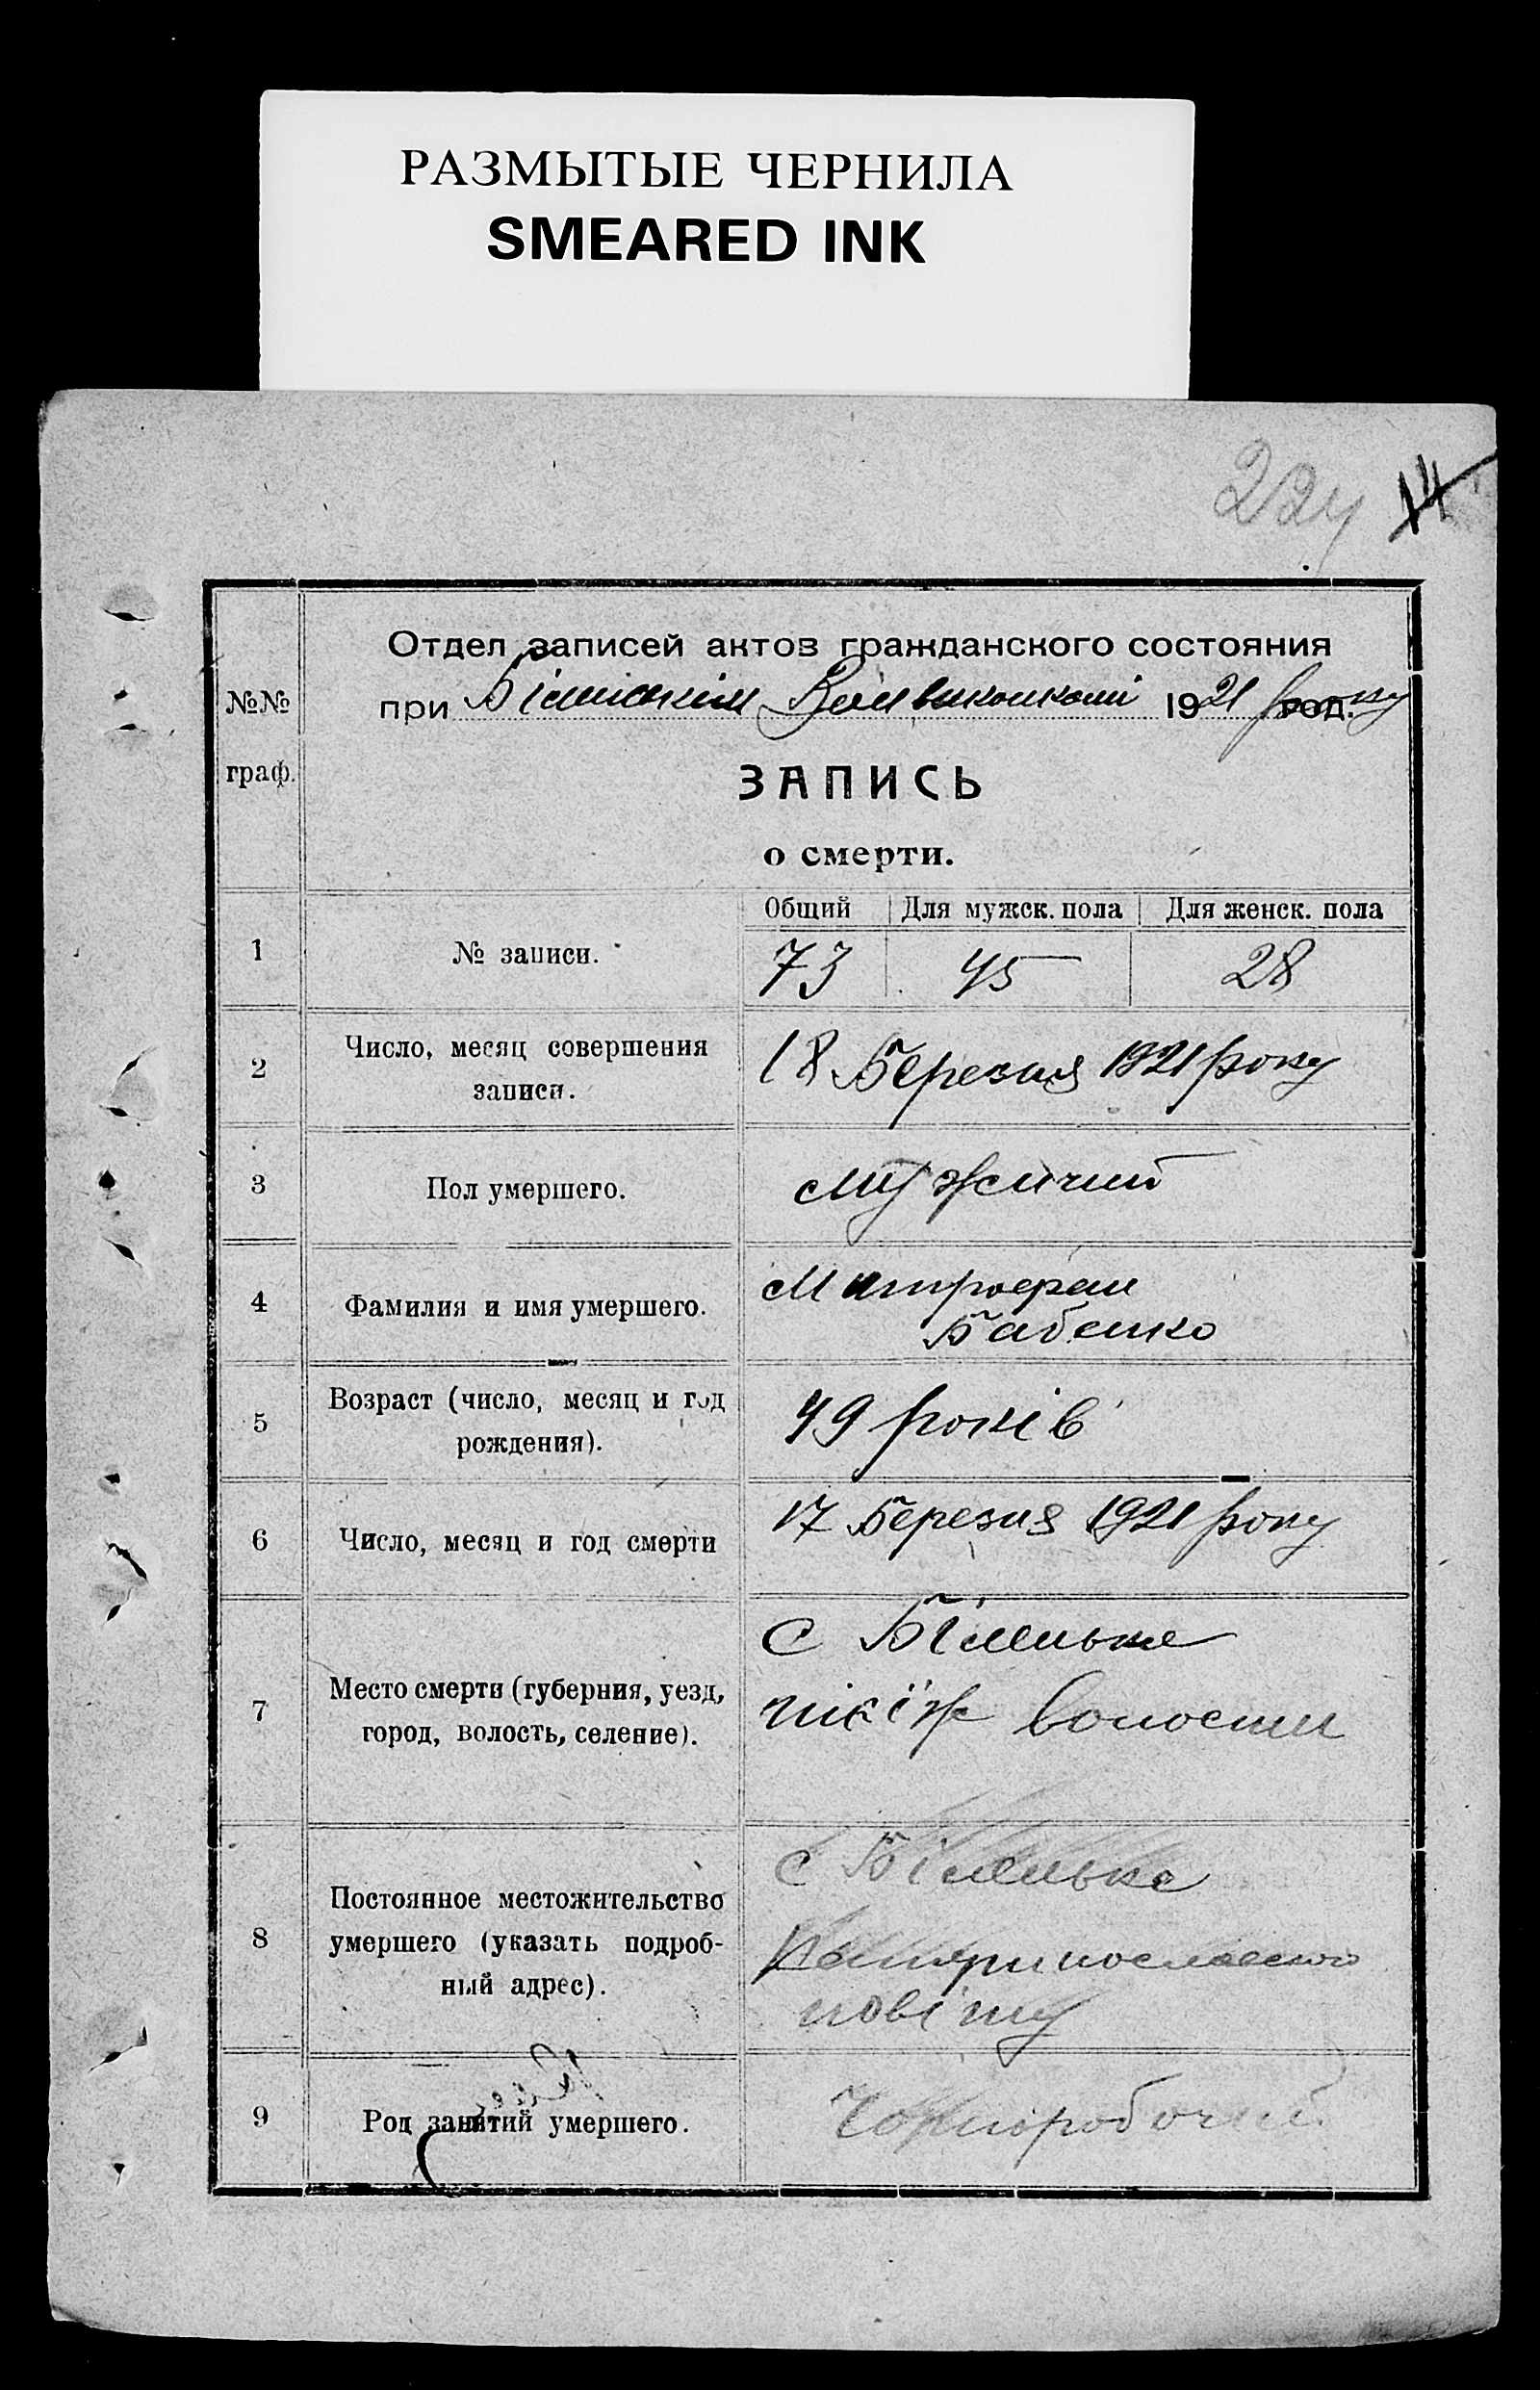 РАЗМЫТЫЕ ЧЕРНИЛА
SMEARED INK
224 14
№№ граф.
Отдел записей актов гражданского состояния
при Біленьким Волвиконкомі 1921 року год.
ЗАПИСЬ
о смерти.
Общий Для мужск. пола Для женск. пола
1 № записи. 73 45 28
2 Число, месяц совершения
записи. 18 Березня 1921 року
3 Пол умершего. мужичий
4 Фамилия и имя умершего. Митрофан
Бабенко
5 Возраст (число, месяц и год
рождения). 49 років
6 Число, месяц и год смерти 17 Березня 1921 року
7 Место смерти (губерния, уезд,
город, волость, селение). с Біленьке
тієїж волости
8 Постоянное местожительство
умершего (указать подроб-
ный адрес). с Біленьке
Катеринославского
повіту
9 Род занятий умершего. Чорноробочий